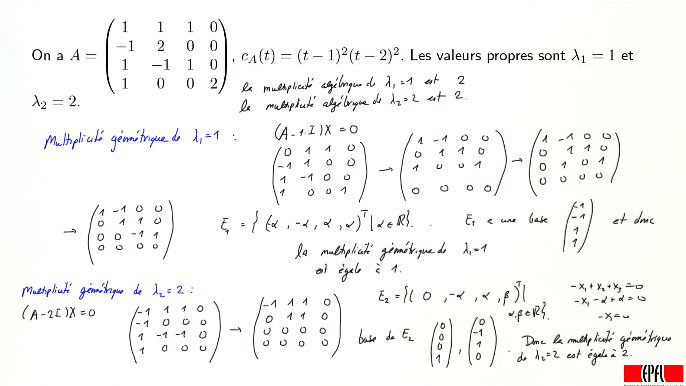 On a A = \begin{pmatrix} 1 & 1 & 1 & 0 \\ -1 & 2 & 0 & 0 \\ 1 & -1 & 1 & 0 \\ 1 & 0 & 0 & 2 \end{pmatrix}, c_A(t) = (t − 1)^2(t − 2)^2. Les valeurs propres sont λ_1 = 1 et
λ_2 = 2.
la multiplicité algébrique de λ_1=1 est 2
la multiplicité algébrique de λ_2=2 est 2.
Multiplicité géométrique de λ_1=1 :
(A-1·I)X=0
\begin{pmatrix} 0 & 1 & 1 & 0 \\ -1 & 1 & 0 & 0 \\ 1 & -1 & 0 & 0 \\ 1 & 0 & 0 & 1 \end{pmatrix} → \begin{pmatrix} 1 & -1 & 0 & 0 \\ 0 & 1 & 1 & 0 \\ 1 & 0 & 0 & 1 \\ 0 & 0 & 0 & 0 \end{pmatrix} → \begin{pmatrix} 1 & -1 & 0 & 0 \\ 0 & 1 & 1 & 0 \\ 0 & 1 & 0 & 1 \\ 0 & 0 & 0 & 0 \end{pmatrix}
→ \begin{pmatrix} 1 & -1 & 0 & 0 \\ 0 & 1 & 1 & 0 \\ 0 & 0 & -1 & 1 \\ 0 & 0 & 0 & 0 \end{pmatrix}
E_1 = { (-α, -α, α, α)^T | α ∈ ℝ}.
E_1 a une base \begin{pmatrix} -1 \\ -1 \\ 1 \\ 1 \end{pmatrix} et donc
la multiplicité géométrique de λ_1=1
est égale à 1.
Multiplicité géométrique de λ_2=2 :
(A-2I)X=0
\begin{pmatrix} -1 & 1 & 1 & 0 \\ -1 & 0 & 0 & 0 \\ 1 & -1 & -1 & 0 \\ 1 & 0 & 0 & 0 \end{pmatrix} → \begin{pmatrix} -1 & 1 & 1 & 0 \\ 0 & 1 & 1 & 0 \\ 0 & 0 & 0 & 0 \\ 0 & 0 & 0 & 0 \end{pmatrix}
E_2 = {( 0, -α, α, β)^T |
α,β ∈ ℝ}.
-x_1+x_2+x_3=0
-x_1-α+α=0
-x_1=0
base de E_2 \begin{pmatrix} 0 \\ 0 \\ 0 \\ 1 \end{pmatrix}, \begin{pmatrix} 0 \\ -1 \\ 1 \\ 0 \end{pmatrix}.
Donc la multiplicité géométrique
de λ_2=2 est égale à 2.
EPFL